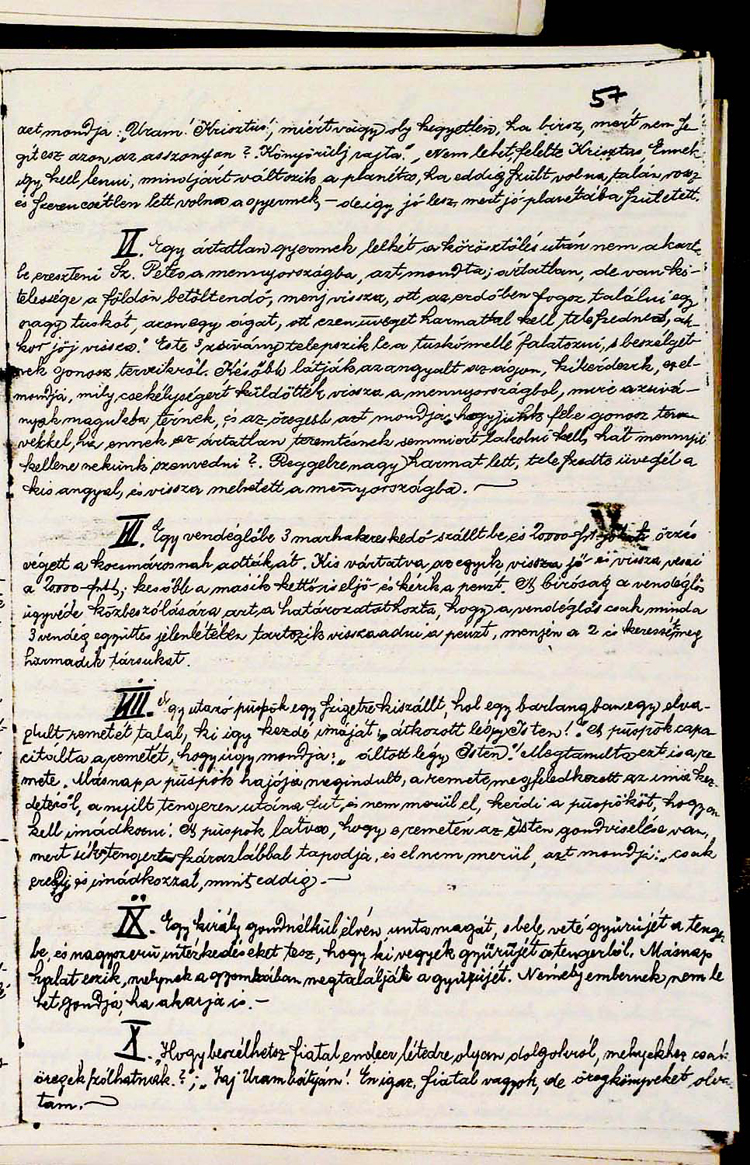 57
azt mondja: „Uram! Krisztus!, miért vagy oly kegyetlen, ha birsz, mért nem se-
gitesz azon az asszonyon? Könyörülj rajta." „Nem lehet, felelte Krisztus Ennek
igy kell lenni, mindjárt változik a planéta, ha eddig szült volna, talán rossz
és szerencsétlen lett volna a gyermek, – de igy jó lesz, mert jó planétába született.
VI. Egy ártatlan gyermek lelkét a körösztölés után nem akart
be ereszteni Sz. Péter a mennyországba, azt mondta; ártatlan, de van kö-
telessége a földön betöltendő, menj vissza, ott az erdőben fogsz találni egy
nagy tuskót, azon egy ágat, ott ezen üveget harmattal kell tele szedned, ak-
kor jöj vissza." Este 3 zsivány telepszik le a tuskó mellé falatozni, s beszélget-
nek gonosz terveikről. Később látják az angyalt az ágon, kikérdezik, ez el-
mondja, mily csekélységért küldötték vissza a mennyországból, mire a zsivá-
nyok magukba térnek, és az öregebb azt mondja, hogy juthk féle gonosz ter-
vekkel, ha ennek az ártatlan teremtésnek semmiért lakolni kell, hát mennyit
kellene nekünk szenvedni?. Reggelre nagy harmat lett, tele szedte üvegét a
kis angyal, és vissza mehetett a mennyországba. —
VII. Egy vendéglőbe 3 marhakereskedő szállt be, és 20000 frt-jokat őrzés
végett a kocsmárosnak adták át. Kis vártatva az egyik vissza jő és vissza veszi
a 20000 frtot; később a másik kettő is eljő és kérik a pénzt. A biróság a vendéglős
ügyvéde közbeszólására azt a határozatot hozta, hogy a vendéglős csak mind a
3 vendég együttes jelenlétében tartozik visszaadni a pénzt, menjen a 2 és keressék meg
harmadik társukat.
VIII. Egy utazó püspök egy szigetre kiszállt, hol egy barlangban egy elva-
dult remetét talál, ki igy kezdé imáját: „átkozott légy Isten!" A püspök capa-
citálta a remetét, hogy úgy mondja: „áldott légy Isten." Megtanulta ezt is a re-
mete. Másnap a püspök hajója megindult, a remete megfeledkezett az imá kez-
detéről, a nyilt tengeren utána fut, és nem merül el, kérdi a püspököt, hogyan
kell imádkozni? A püspök látva, hogy e remetén az Isten gondviselése van,
mert a tengert szárazlábbal tapodja, és el nem merül, azt mondja: „csak
eredj és imádkozzál, mint eddig. —
IX. Egy király gondnélkül élvén unta magát, s bele veté gyürüjét a tenger-
be, és nagyszerü intézkedéseket tesz, hogy ki vegyék gyürüjét a tengerből. Másnap
halat eszik, melynek a gyomrában megtalálják a gyürüjét. Némely embernek nem le-
het gondja, ha akarja is. —
X. „Hogy beszélhetsz fiatal ember létedre olyan dolgokról, melyekhez csak
öregek szólhatnak.?"; „Jaj Uram bátyám! Én igaz, fiatal vagyok, de öreg könyveket olvas-
tam. —